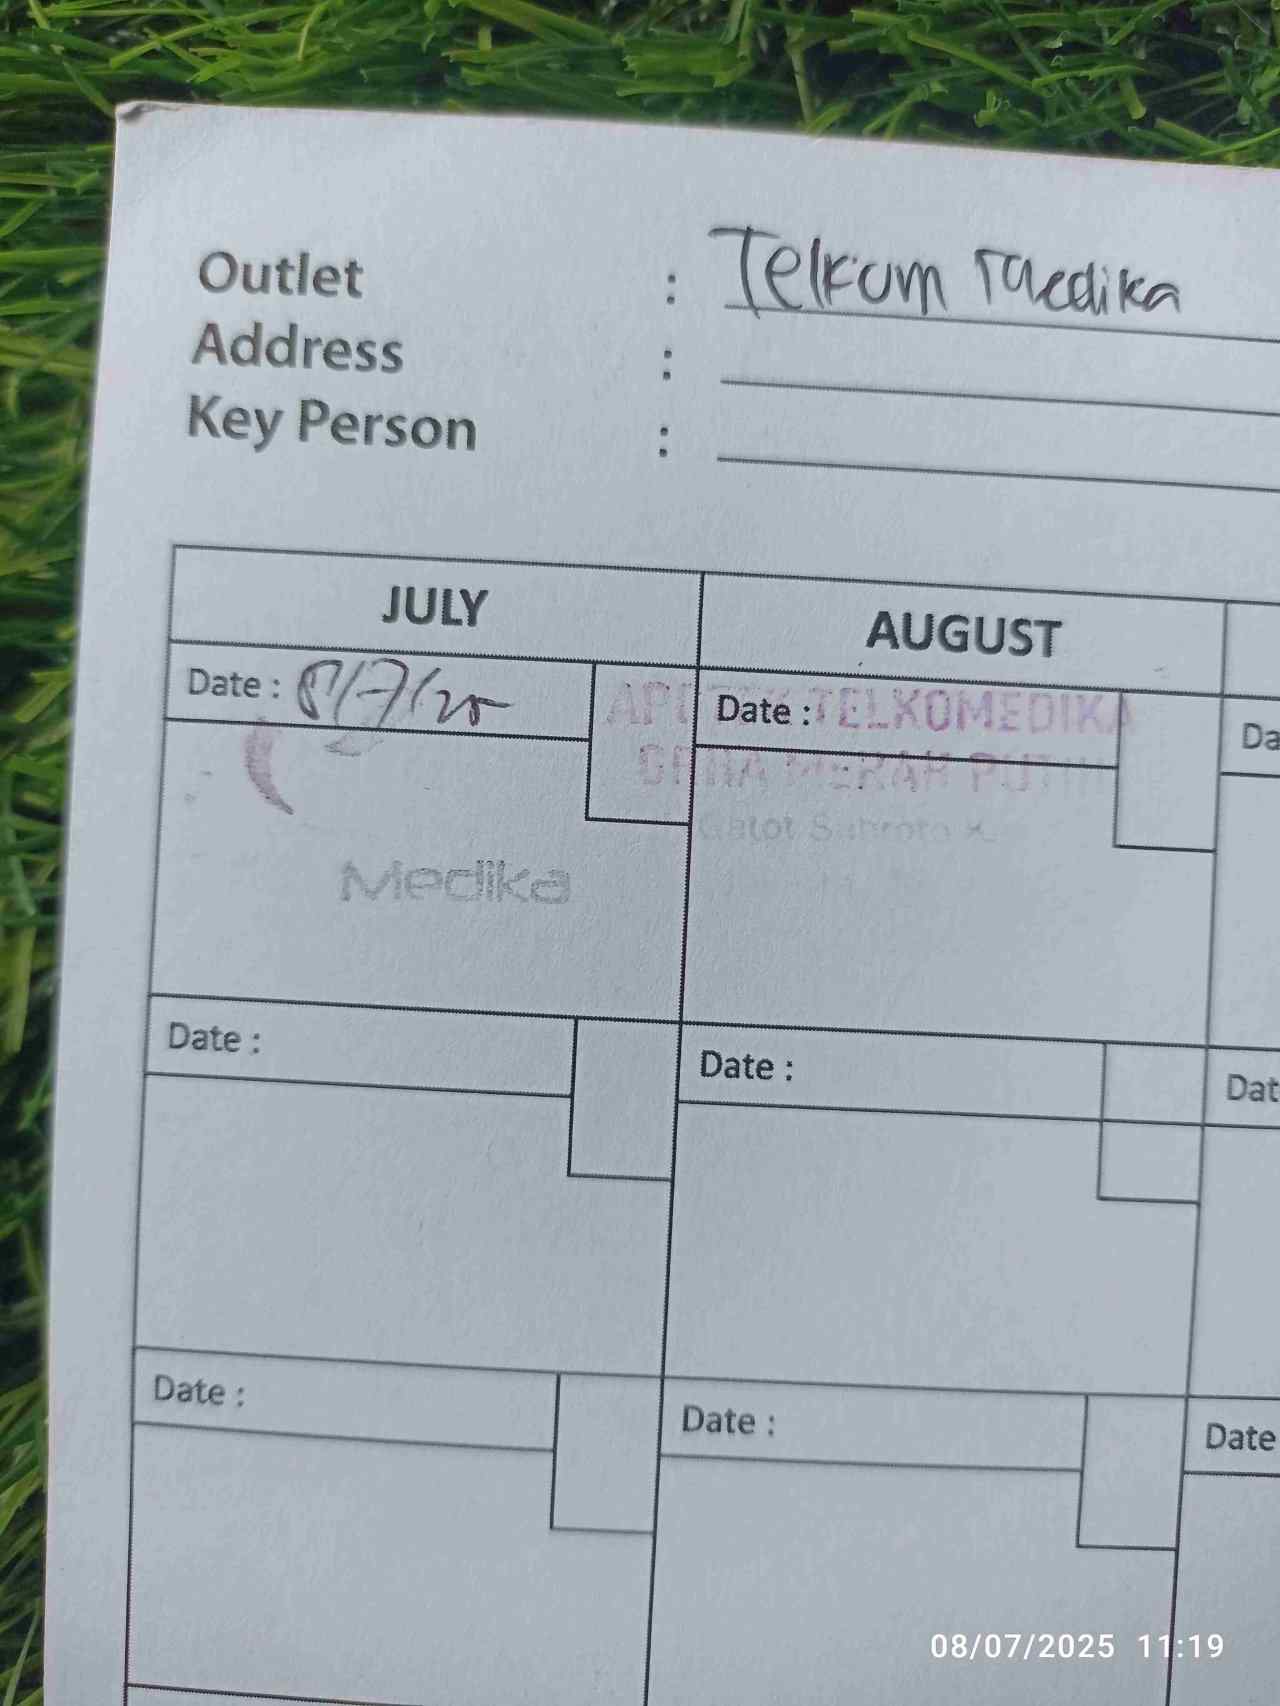 Outlet : Telkom Medika
Address :
Key Person :
JULY AUGUST
Date : 8/7/25 Date : Da
APOTEK TELKOMEDIKA
GRHA MERAH PUTIH
Gatot Subroto
Medika
Date : Date : Dat
Date : Date : Date
08/07/2025 11:19